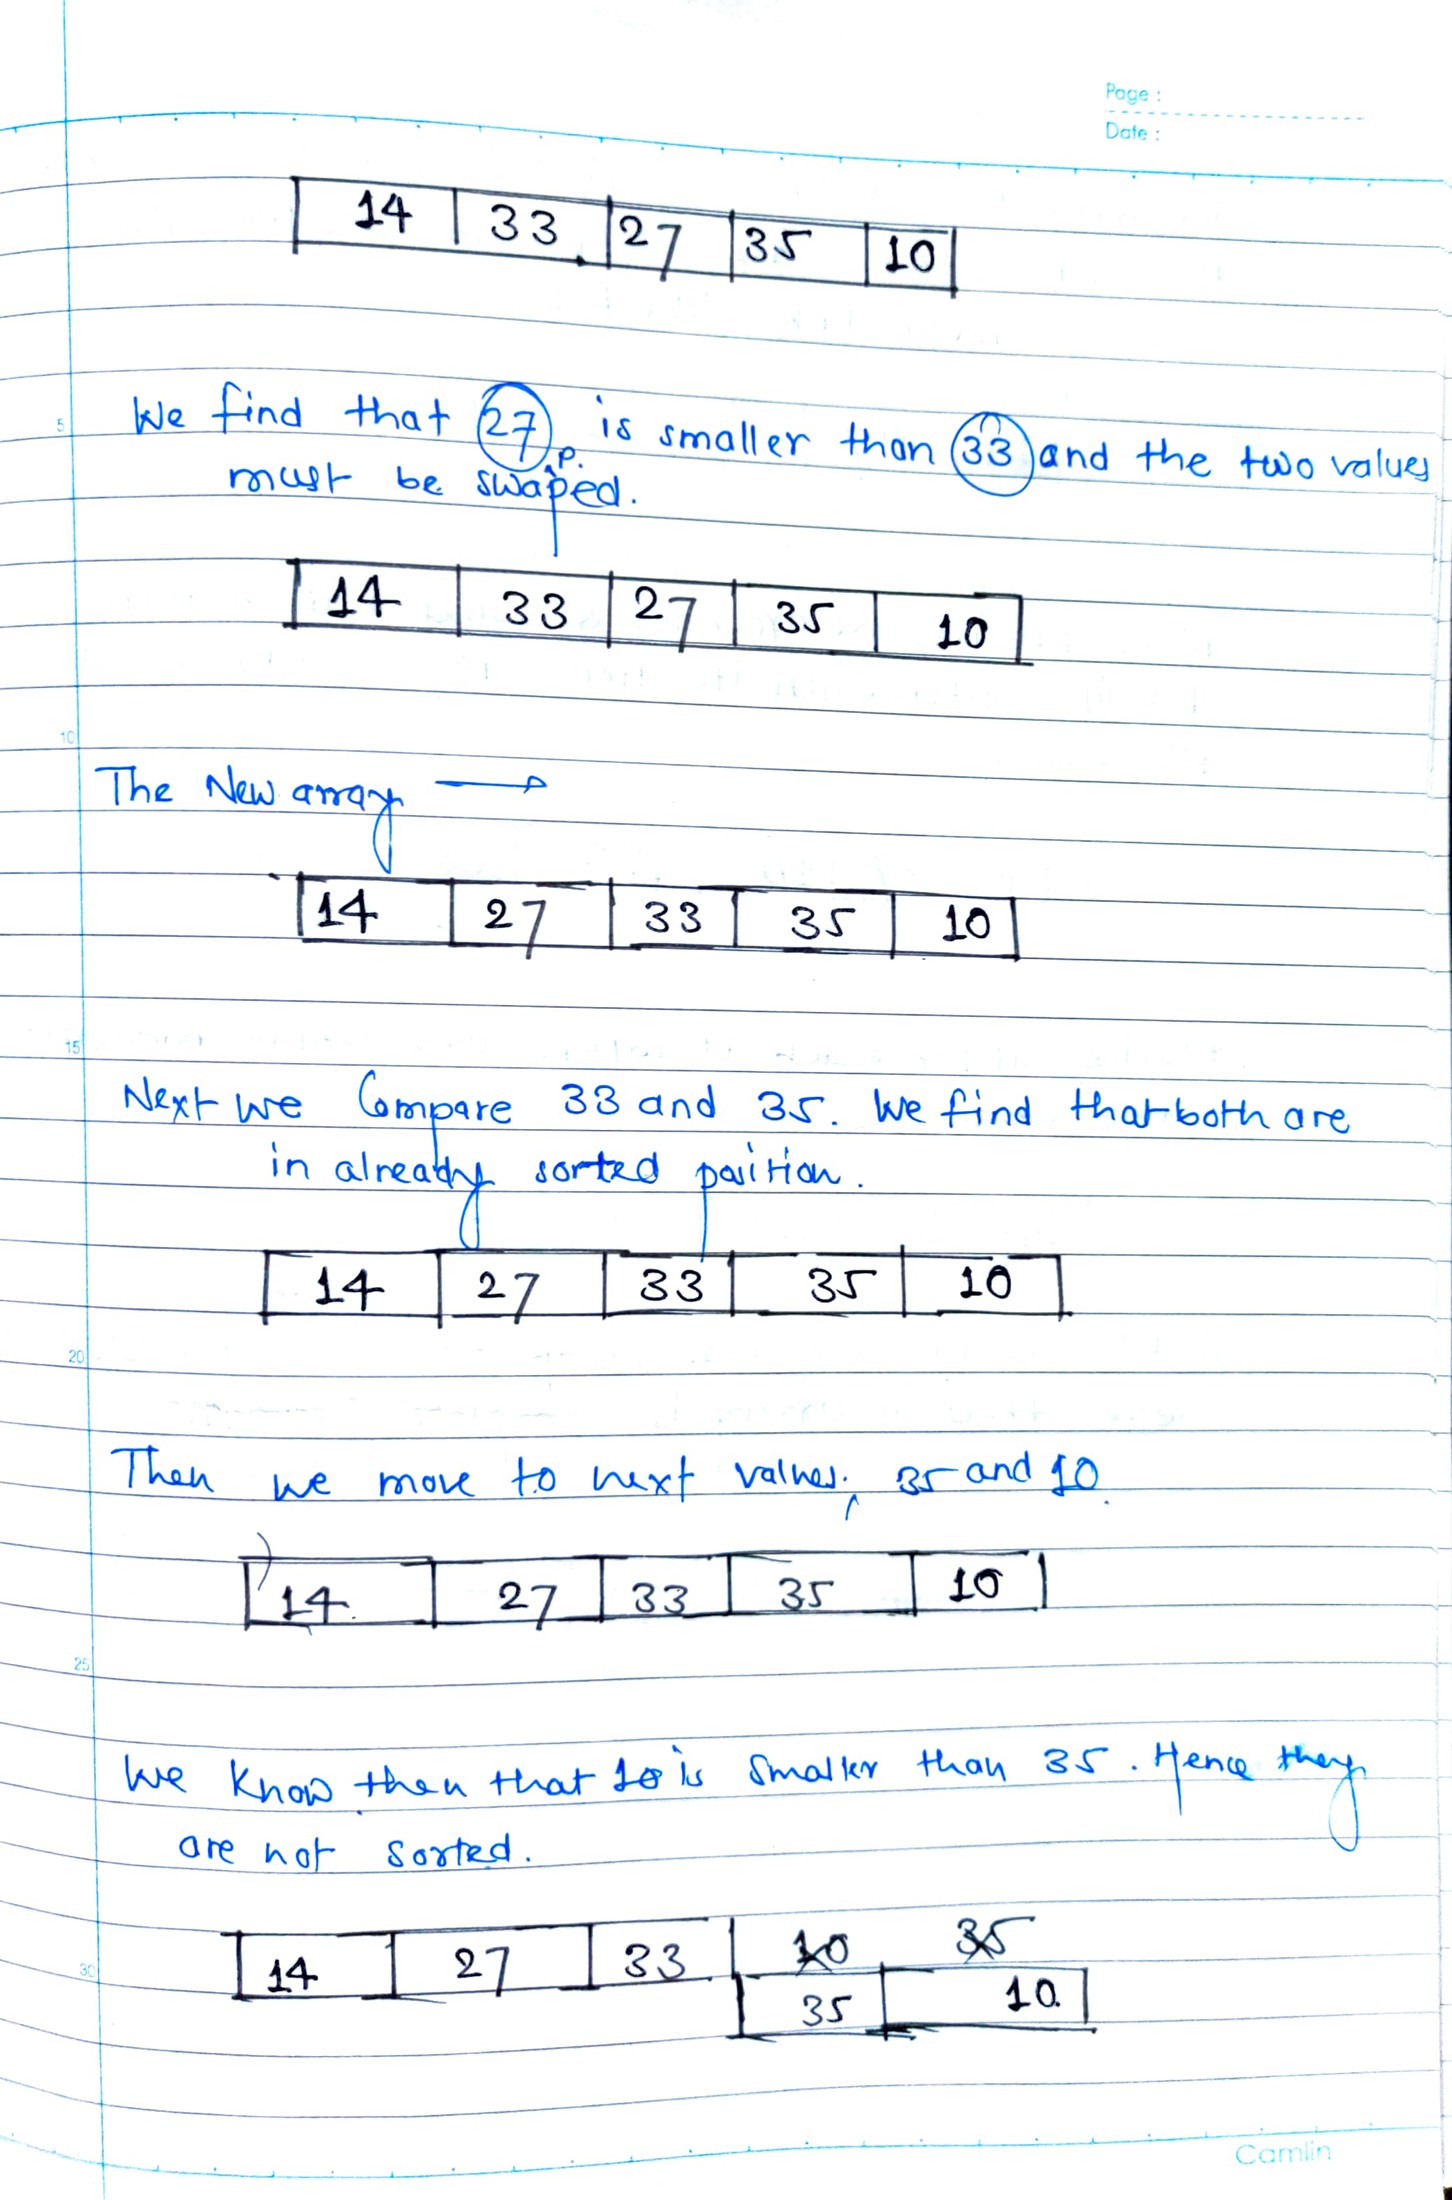 Page :
Date :
14 33 27 35 10
5
We find that 27 is smaller than 33 and the two values
p.
must be swaped.
14 33 27 35 10
10
The New array
14 27 33 35 10
15
Next we Compare 33 and 35. We find that both are
in already sorted position.
14 27 33 35 10
20
Then we move to next values. 35 and 10
14 27 33 35 10
25
We know then that 10 is smaller than 35. Hence they
are not sorted.
10 35
30
14 27 33
35 10
Camlin